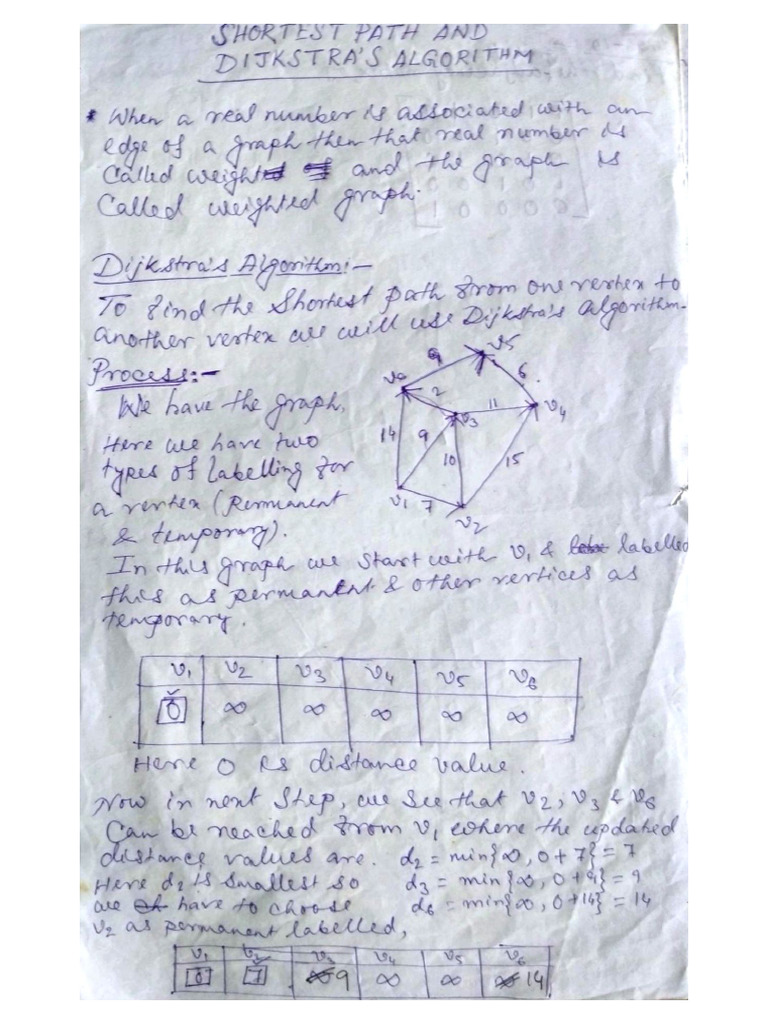 SHORTEST PATH AND
DIJKSTRA'S ALGORITHM
* When a real number is associated with an
edge of a graph then that real number is
Called weight and the graph is
Called weighted graph.
Dijkstra's Algorithm:-
To find the Shortest path from one vertex to
another vertex we will use Dijkstra's Algorithm.
Process:-
We have the graph,
Here we have two
types of labelling for
a vertex (Permanent
& temporary).
v5
9
6
2
v3
11
v4
14
9
10
15
v1
7
v2
In this graph we start with v1 & labelled
this as permanent & other vertices as
temporary.
v1 v2 v3 v4 v5 v6
0 ∞ ∞ ∞ ∞ ∞
Here 0 is distance value.
Now in next step, we see that v2, v3 & v6
Can be reached from v1 where the updated
distance values are. d2 = min{∞, 0+7} = 7
Here d2 is smallest so d3 = min{∞, 0+9} = 9
we have to choose d6 = min{∞, 0+14} = 14
v2 as permanent labelled,
v1 v2 v3 v4 v5 v6
0 7 ∞ 9 ∞ ∞ ∞ 14